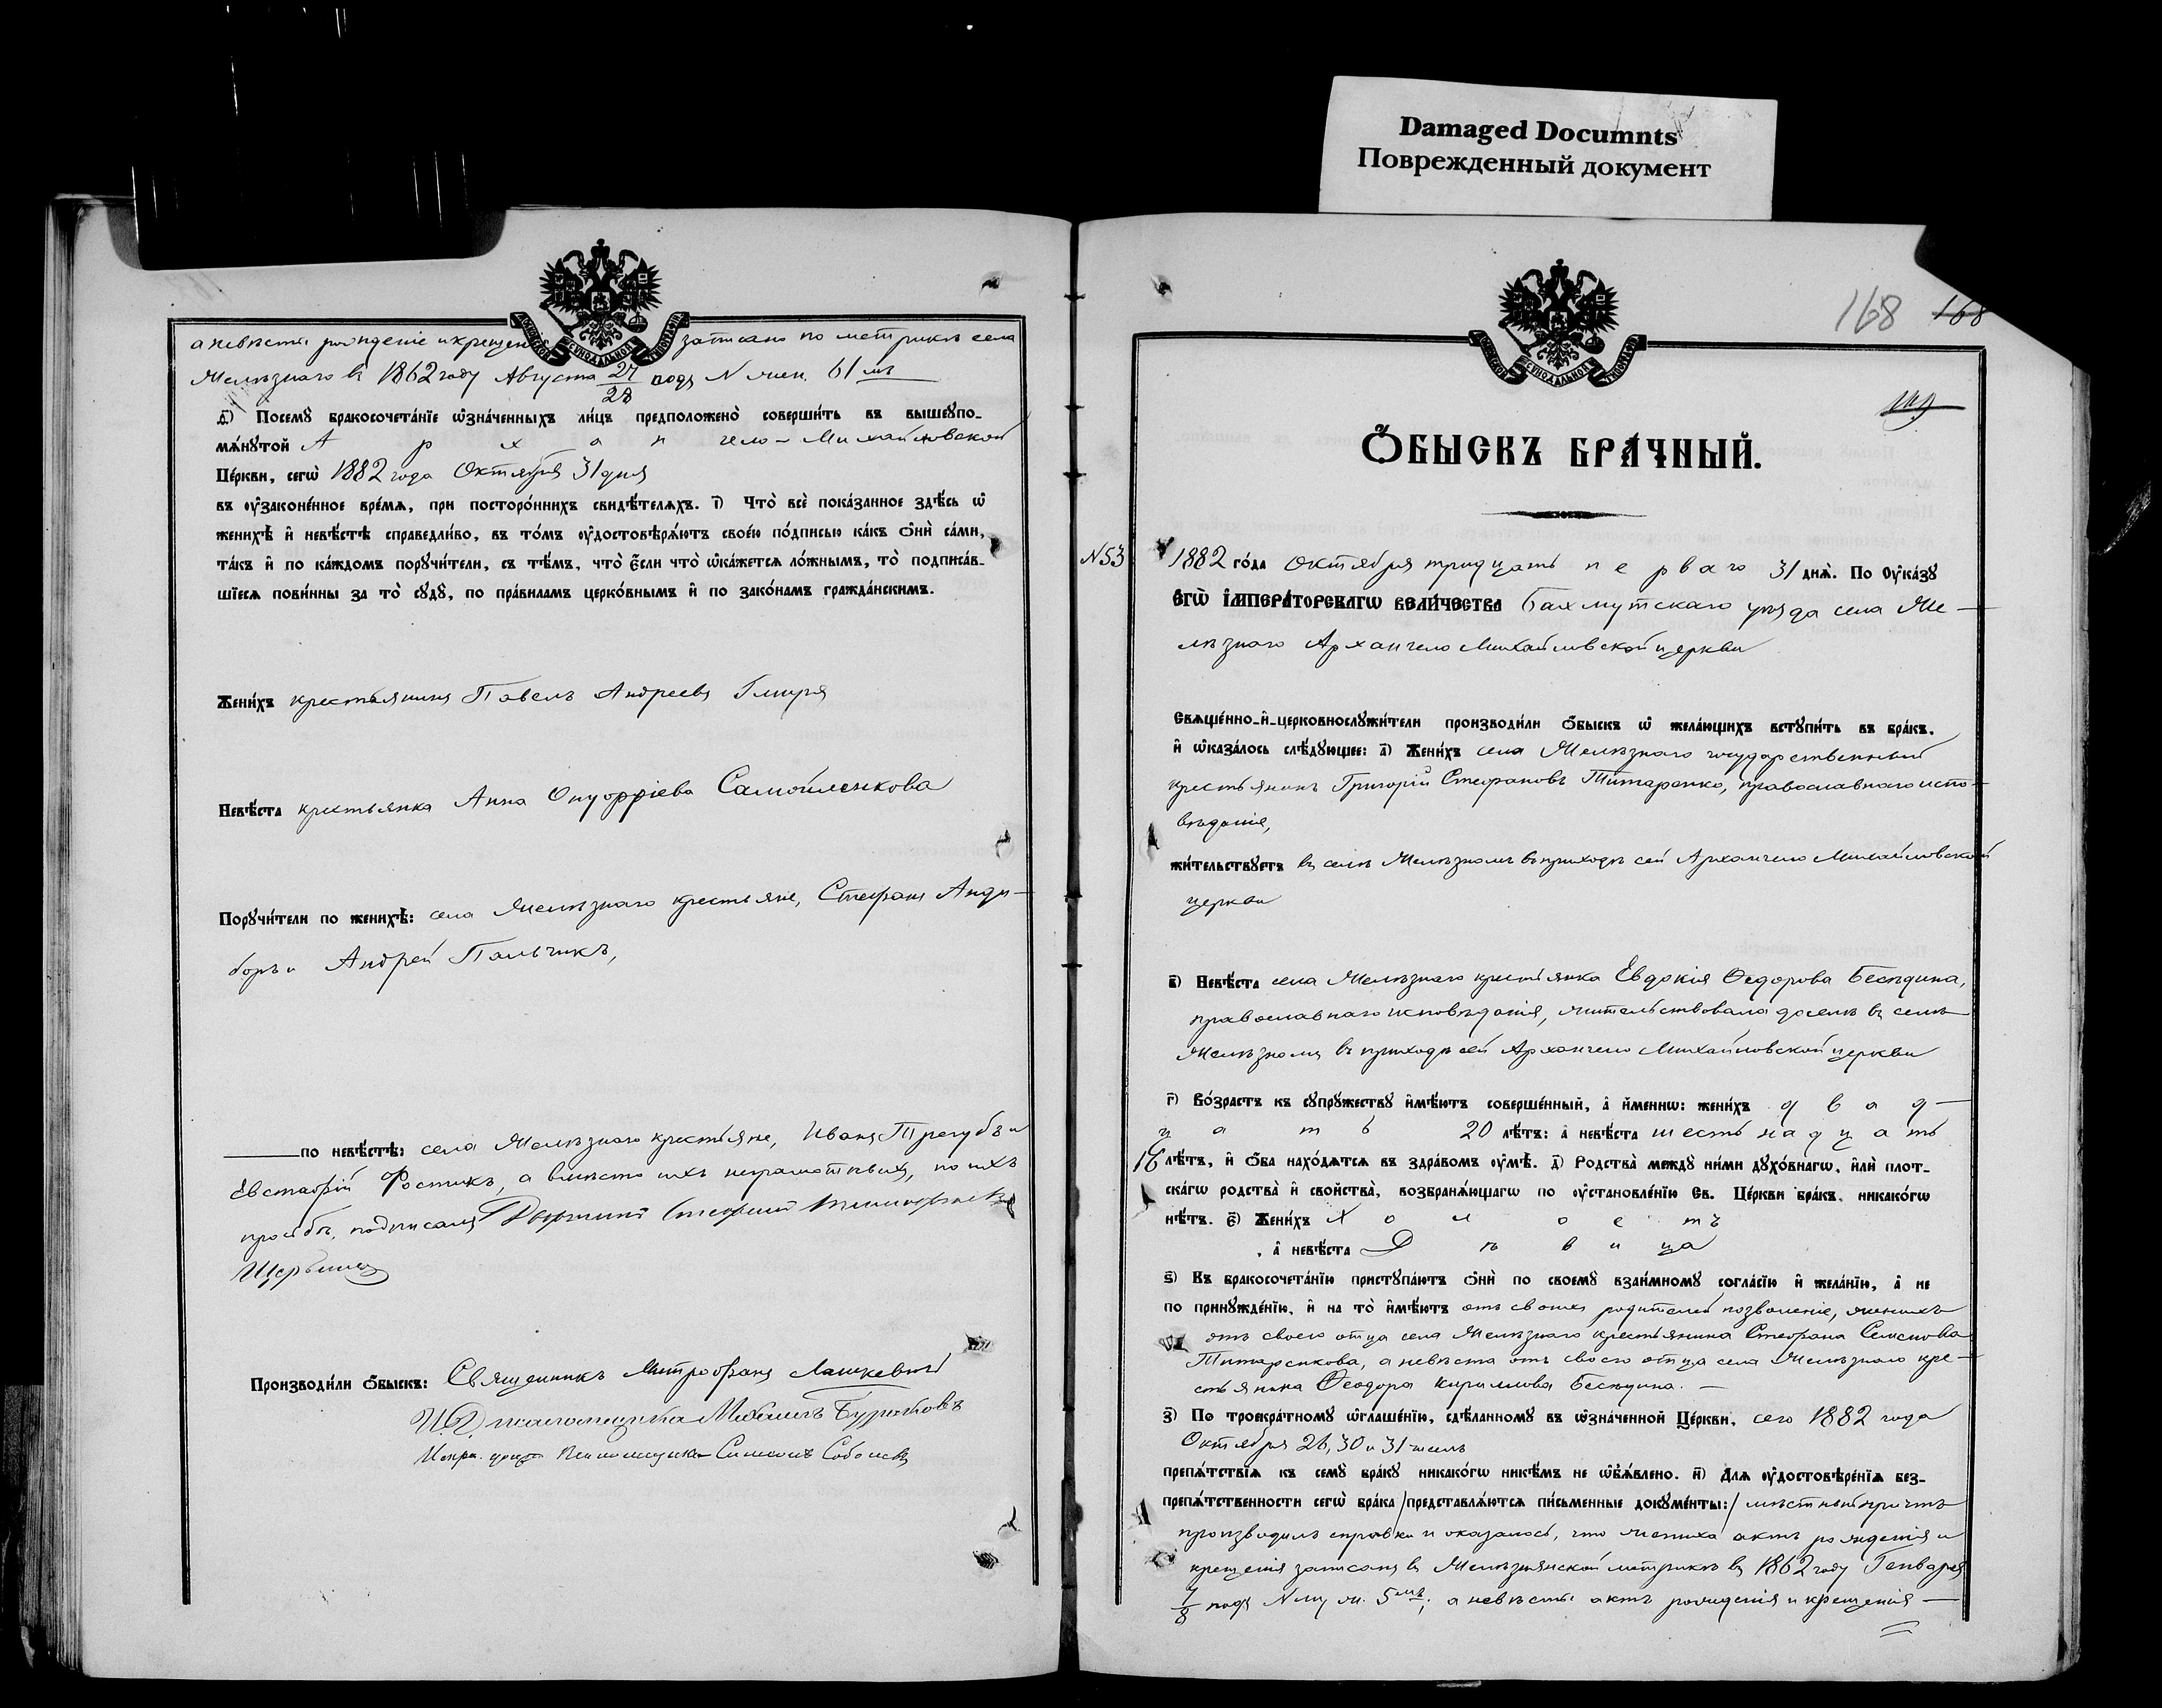 Damaged Documnts
Поврежденный документ
а невѣсты рожденіе и крещеніе записано по метрикѣ села
Желѣзнаго въ 1862 году Августа 27/28 подъ N жен. 61 мъ
д҃) Посемꙋ бракосочета́нїе ѡ҆зна́ченныхъ ли́цъ предположено̀ соверши́ть въ вышеꙋпо-
мѧ́нꙋтой Архангело-Михайловской
Це́ркви, сегѡ̀ 1882 года Октября 31 дня
въ ᲂу҆законе́нное вре́мѧ, при посторо́ннихъ свидѣ́телѧхъ. і҃) Что̀ всѐ пока́занное здѣ́сь ѡ҆
женихѣ̀ и҆ невѣ́стѣ справедли́во, въ то́мъ ᲂу҆достовѣрѧ́ютъ свое́ю по́дписью ка́къ ѻ҆нѝ са́ми,
та́къ и҆ по ка́ждомъ порꙋчи́тели, съ тѣ́мъ, что̀ є҆́сли что̀ ѡ҆ка́жетсѧ ло́жнымъ, то̀ подписа́в-
шїесѧ пови́нны за то̀ сꙋдꙋ̀, по пра́виламъ церко́внымъ и҆ по зако́намъ гражда́нскимъ.
Жени́хъ крестьянинъ Павелъ Андреевъ Гмиря
Невѣ́ста крестьянка Анна Онуфріева Самойленкова
Порꙋчи́тели по женихѣ̀: села Желѣзнаго крестьяне, Стефанъ Анди-
боръ и Андрей Пальчикъ,
по невѣ́стѣ: села Желѣзнаго крестьяне, Иванъ Трегубъ и
Евстафій Фостикъ, а вмѣсто ихъ неграмотныхъ, по ихъ
просьбѣ, подписалъ
Щербина
Производи́ли ѻ҆́быскъ: Священникъ Митрофанъ Лашкевичъ
И. Д. псаломщика Михаилъ Бурлковъ
Испр. должн. Псаломщика Симеонъ Соболевъ
168 168
149
Ѻ҆́БЫСКЪ БРА́ЧНЫЙ.
N 53
1882 го́да Октября тридцать перваго 31 днѧ̀. По Оу҆ка́зꙋ
Е҆гѡ̀ І҆мпера́торскагѡ Вели́чества Бахмутскаго уѣзда села Же-
лѣзнаго Архангело Михайловской церкви
Свѧще́нно-и҆-церковнослꙋжи́тели производи́ли ѻ҆́быскъ ѡ҆ жела́ющихъ встꙋпи́ть въ бра́къ.
и҆ ѡ҆каза́лось слѣ́дꙋющее: а҃) Жени́хъ села Желѣзнаго государственный
крестьянинъ Григорій Стефановъ Титаренко, православнаго испо-
вѣданія,
жи́тельствꙋетъ въ селѣ Желѣзномъ въ приходѣ сей Архангело Михайловской
церкви
в҃) Невѣ́ста села Желѣзнаго крестьянка Евдокія Ѳедорова Бесѣдина,
православнаго исповѣданія, жительствовала доселѣ въ селѣ
Желѣзномъ въ приходѣ сей Архангело Михайловской церкви
г҃) Во́зрастъ къ сꙋпрꙋ́жествꙋ и҆мѣ́ютъ соверше́нный, а҆ и҆́меннѡ: жени́хъ двад-
цать 20 лѣ́тъ: а҆ невѣ́ста шестьнадцать
16 лѣ́тъ, и҆ ѻ҆́ба нахо́дѧтсѧ въ здра́вомъ ᲂу҆мѣ̀. д҃) Родства̀ междꙋ ни́ми дꙋхо́внагѡ, и҆лѝ плот-
ска́гѡ родства̀ и҆ сво́йства, возбранѧ́ющагѡ по ᲂу҆становле́нїю Св. Це́ркви бра́къ, никако́гѡ
нѣ́тъ. є҃) Жени́хъ Холостъ
, а҆ невѣ́ста Дѣвица
ѕ҃) Къ бракосочета́нїю пристꙋпа́ютъ ѻ҆нѝ по своемꙋ̀ взаи́мномꙋ согла́сїю и҆ жела́нїю, а҆ не
по принꙋжде́нїю, и҆ на то̀ и҆мѣ́ютъ отъ своихъ родителей позволеніе, женихъ
отъ своего отца села Желѣзнаго крестьянина Стефана Семенова
Титаренкова, а невѣста отъ своего отца села Желѣзнаго кре-
стьянина Ѳеодора Кириллова Бесѣдина. —
з҃) По троекра́тномꙋ ѡ҆глаше́нїю, сдѣ́ланномꙋ въ ѡ҆зна́ченной Це́ркви, сего 1882 года
Октября 26, 30 и 31 чиселъ
препѧ́тствїѧ къ семꙋ̀ бра́кꙋ никако́гѡ никѣ́мъ не ѡ҆б̾ѧ́влено. и҃) Длѧ ᲂу҆достовѣре́нїѧ без-
препѧ́тственности сегѡ̀ бра́ка /представлѧ́ютсѧ пи́сьменные докꙋме́нты:/ мѣстный причтъ
производилъ справки и оказалось, что жениха актъ рожденія и
крещенія записанъ въ Желѣзнянской метрикѣ въ 1862 году Генваря
7/8 подъ N муж. 5 мъ; а невѣсты актъ рожденія и крещенія —